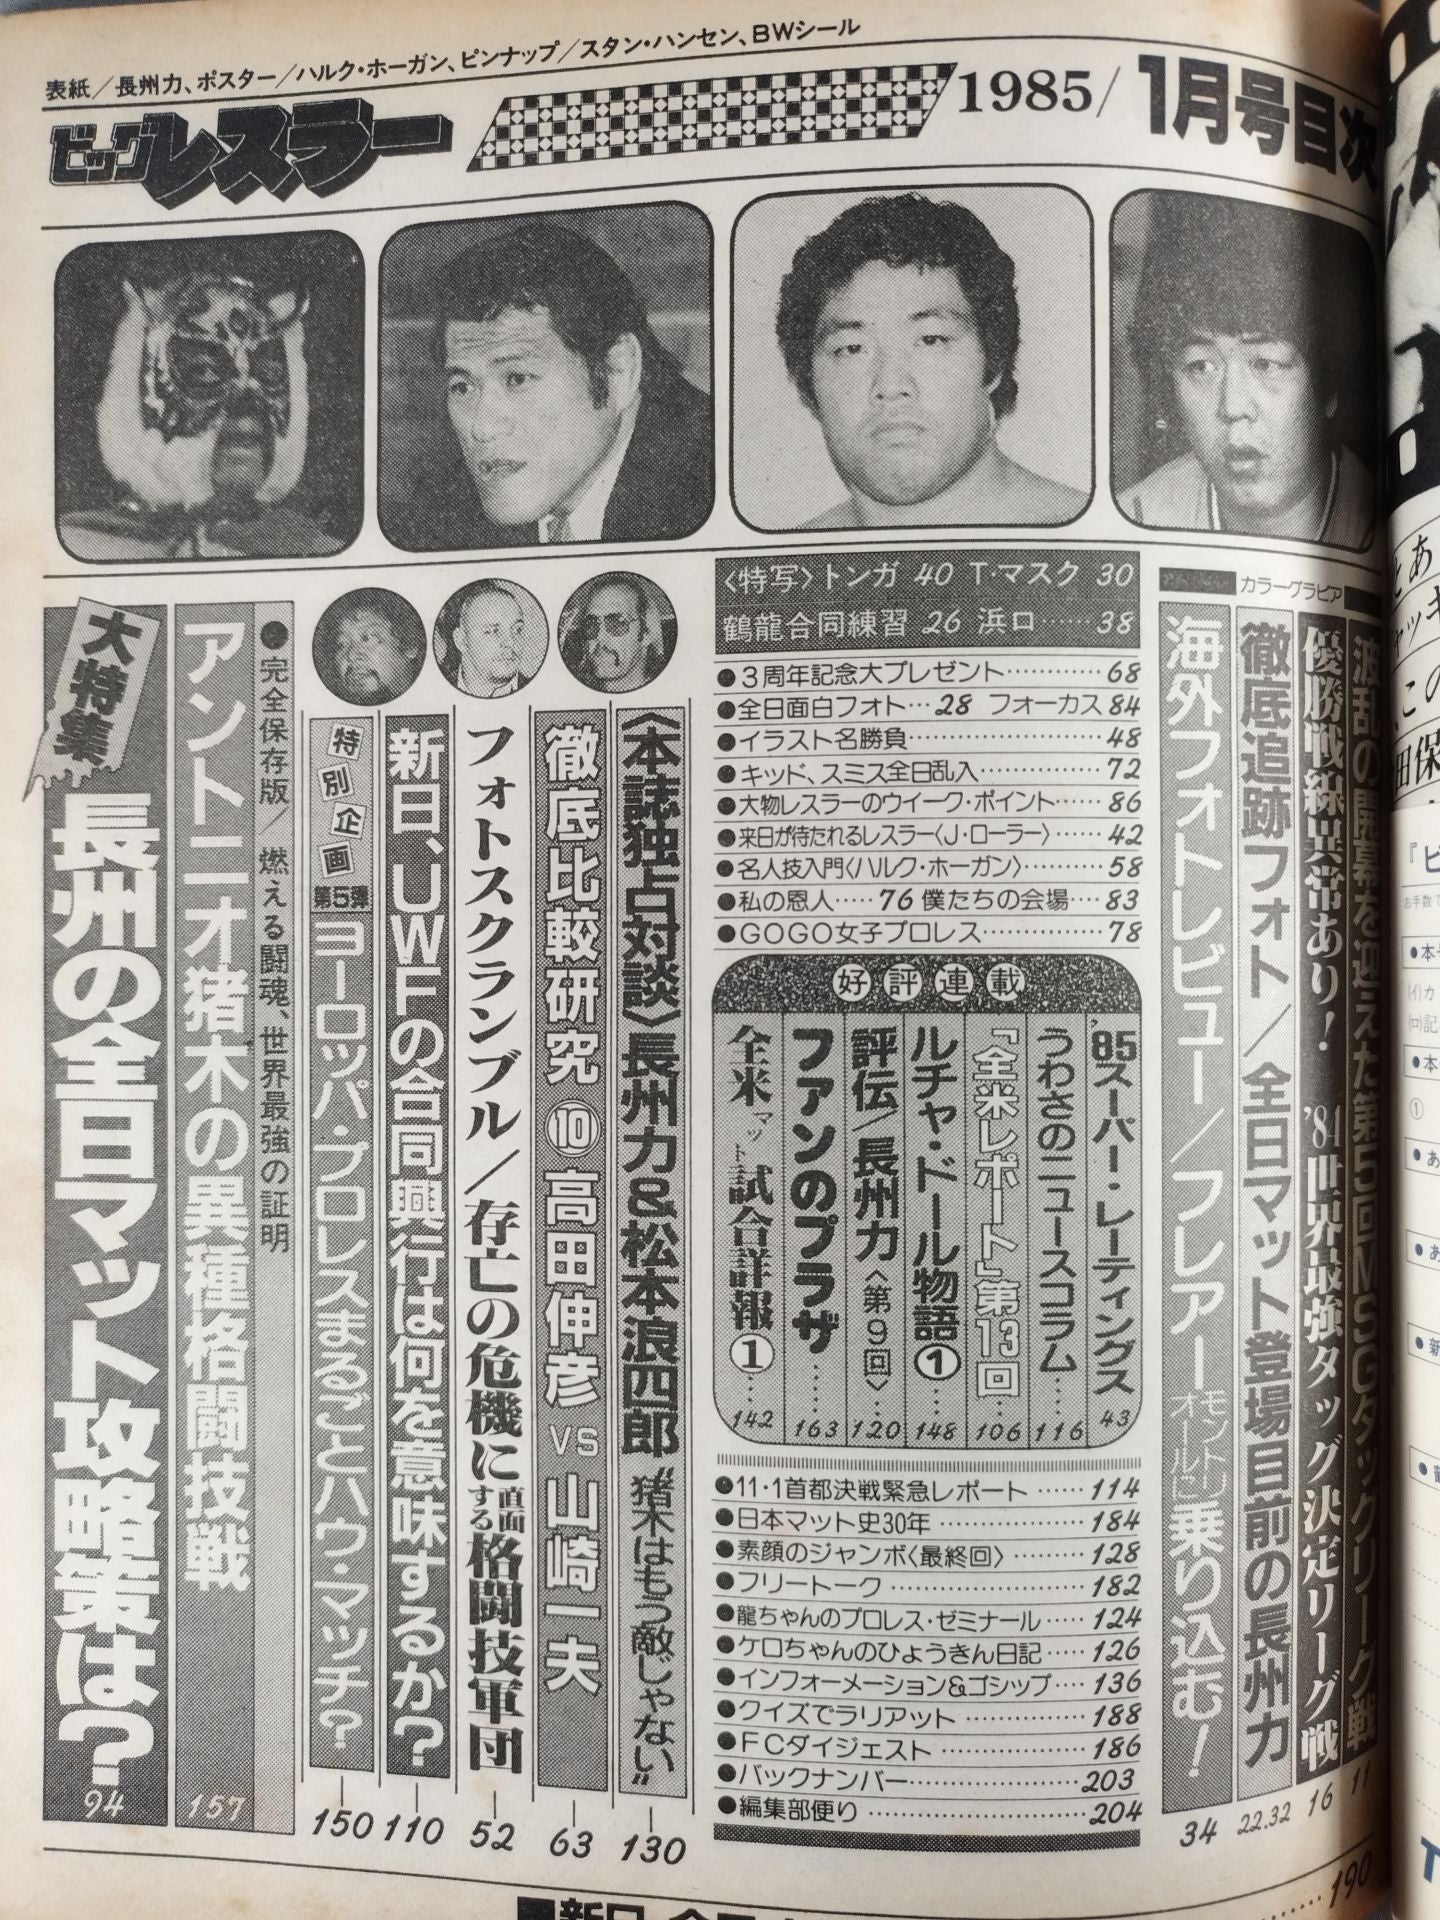 表紙／長州力、ポスター／ハルク・ホーガン、ピンナップ／スタン・ハンセン、BWシール
ビッグレスラー
1985/1月号目次
カラーグラビア
波乱の開幕を迎えた第5回MSGタッグリーグ戦 11
優勝戦線異常あり！ '84世界最強タッグ決定リーグ戦 16
徹底追跡フォト／全日マット登場目前の長州力 22.32
海外フォトレビュー／フレアーオモニ・ワールドに乗り込む！ 34
〈特写〉トンガ 40 T・マスク 30
鶴龍合同練習 26 浜口……38
●3周年記念大プレゼント…………68
●全日面白フォト…28 フォーカス 84
●イラスト名勝負…………48
●キッド、スミス全日乱入…………72
●大物レスラーのウイーク・ポイント……86
●来日が待たれるレスラー〈J・ローラー〉……42
●名人技入門〈ハルク・ホーガン〉……58
●私の恩人……76 僕たちの会場…83
●GOGO女子プロレス…………78
好評連載
'85スーパー・レーティングス 43
うわさのニュースコラム……116
「全米レポート」第13回 106
ルチャ・ドール物語①……148
評伝／長州力〈第9回〉 120
ファンのプラザ……163
全米マット試合詳報①……142
●11・1首都決戦緊急レポート……114
●日本マット史30年…………184
●素顔のジャンボ〈最終回〉…………128
●フリートーク…………182
●龍ちゃんのプロレス・ゼミナール……124
●ケロちゃんのひょうきん日記……126
●インフォーメーション&ゴシップ……136
●クイズでラリアット…………188
●FCダイジェスト…………186
●バックナンバー…………203
●編集部便り…………204
〈本誌独占対談〉長州力&松本浪四郎“猪木はもう敵じゃない” 130
徹底比較研究⑩高田伸彦VS山崎一夫 63
フォトスクランブル／存亡の危機に直面する格闘技軍団 52
新日、UWFの合同興行は何を意味するか？ 110
特別企画 第5弾 ヨーロッパ・プロレスまるごとハウ・マッチ？ 150
●完全保存版／燃える闘魂、世界最強の証明
アントニオ猪木の異種格闘技戦 157
大特集 長州の全日マット攻略策は？ 94
……190